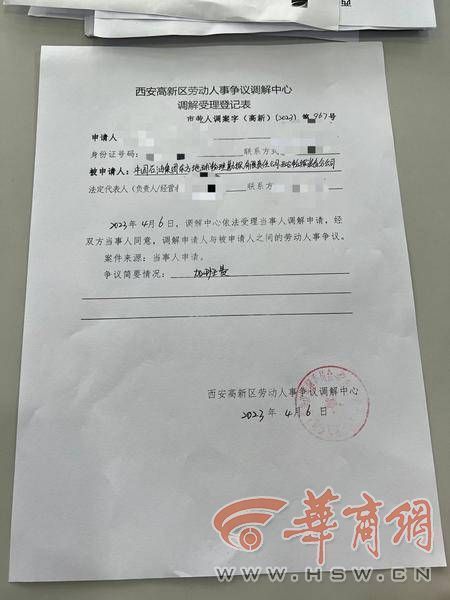 西安高新区劳动人事争议调解中心
调解受理登记表
市劳人调案字（高新）(2023) 第967号
申请人
身份证号码： 联系方式
被申请人：中国石油集团东方地球物理勘探有限责任公司西安物探装备分公司
法定代表人（负责人/经营者 联系方
2023年4月6日，调解中心依法受理当事人调解申请，经
双方当事人同意，调解申请人与被申请人之间的劳动人事争议。
案件来源：当事人申请。
争议简要情况： 加班费
西安高新区劳动人事争议调解中心
2023 年 4月 6 日
華商網
WWW.HSW.CN